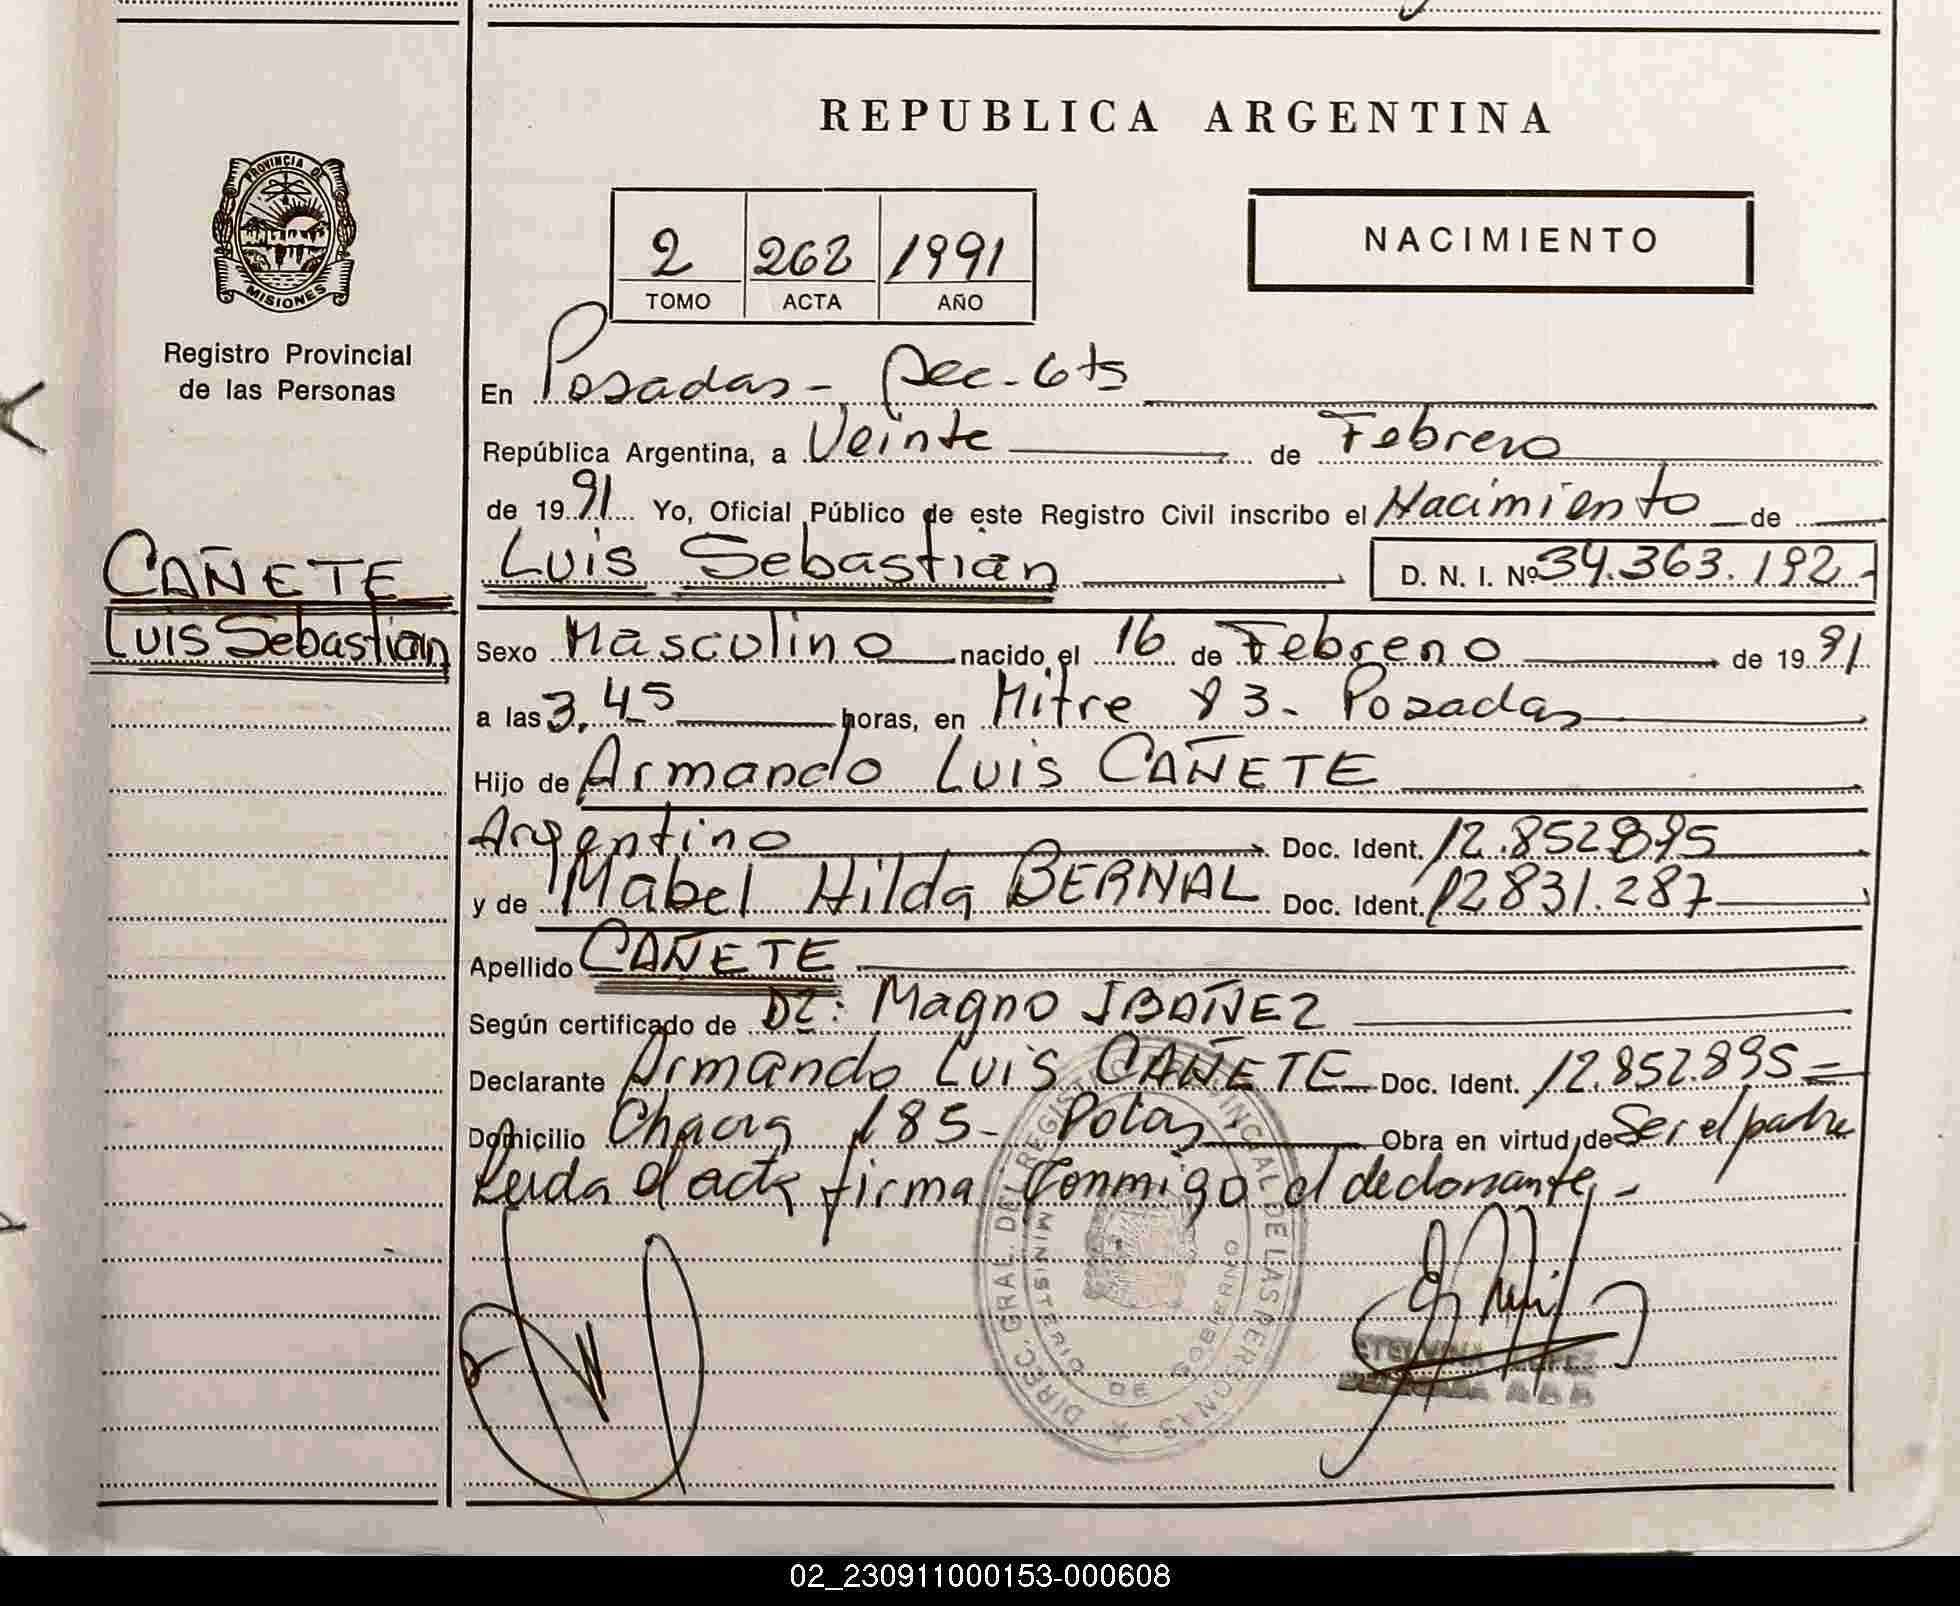 REPUBLICA ARGENTINA
PROVINCIA DE
MISIONES
Registro Provincial
de las Personas
2 262 1991
TOMO ACTA AÑO
NACIMIENTO
En Posadas - Sec. 6ts
República Argentina, a Veinte de Febrero
de 1991 Yo, Oficial Público de este Registro Civil inscribo el Nacimiento de
CAÑETE
Luis Sebastian
Luis Sebastian D. N. I. Nº 34.363.192.-
Sexo Masculino nacido el 16 de Febrero de 1991
a las 3,45 horas, en Mitre 83 - Posadas
Hijo de Armando Luis CAÑETE
Argentino Doc. Ident. 12.852.895
y de Mabel Hilda BERNAL Doc. Ident. 12831.287
Apellido CAÑETE
Según certificado de Dr: Magno IBAÑEZ
Declarante Armando Luis CAÑETE Doc. Ident. 12.852.895=
Domicilio Chacra 185 - Pdas Obra en virtud de Ser el padre
Leida el acta firma Conmigo el declarante, -
DIREC. GRAL. DEL REGISTRO PROVINCIAL DE LAS PERSONAS
MINISTERIO DE GOBIERNO
02_230911000153-000608